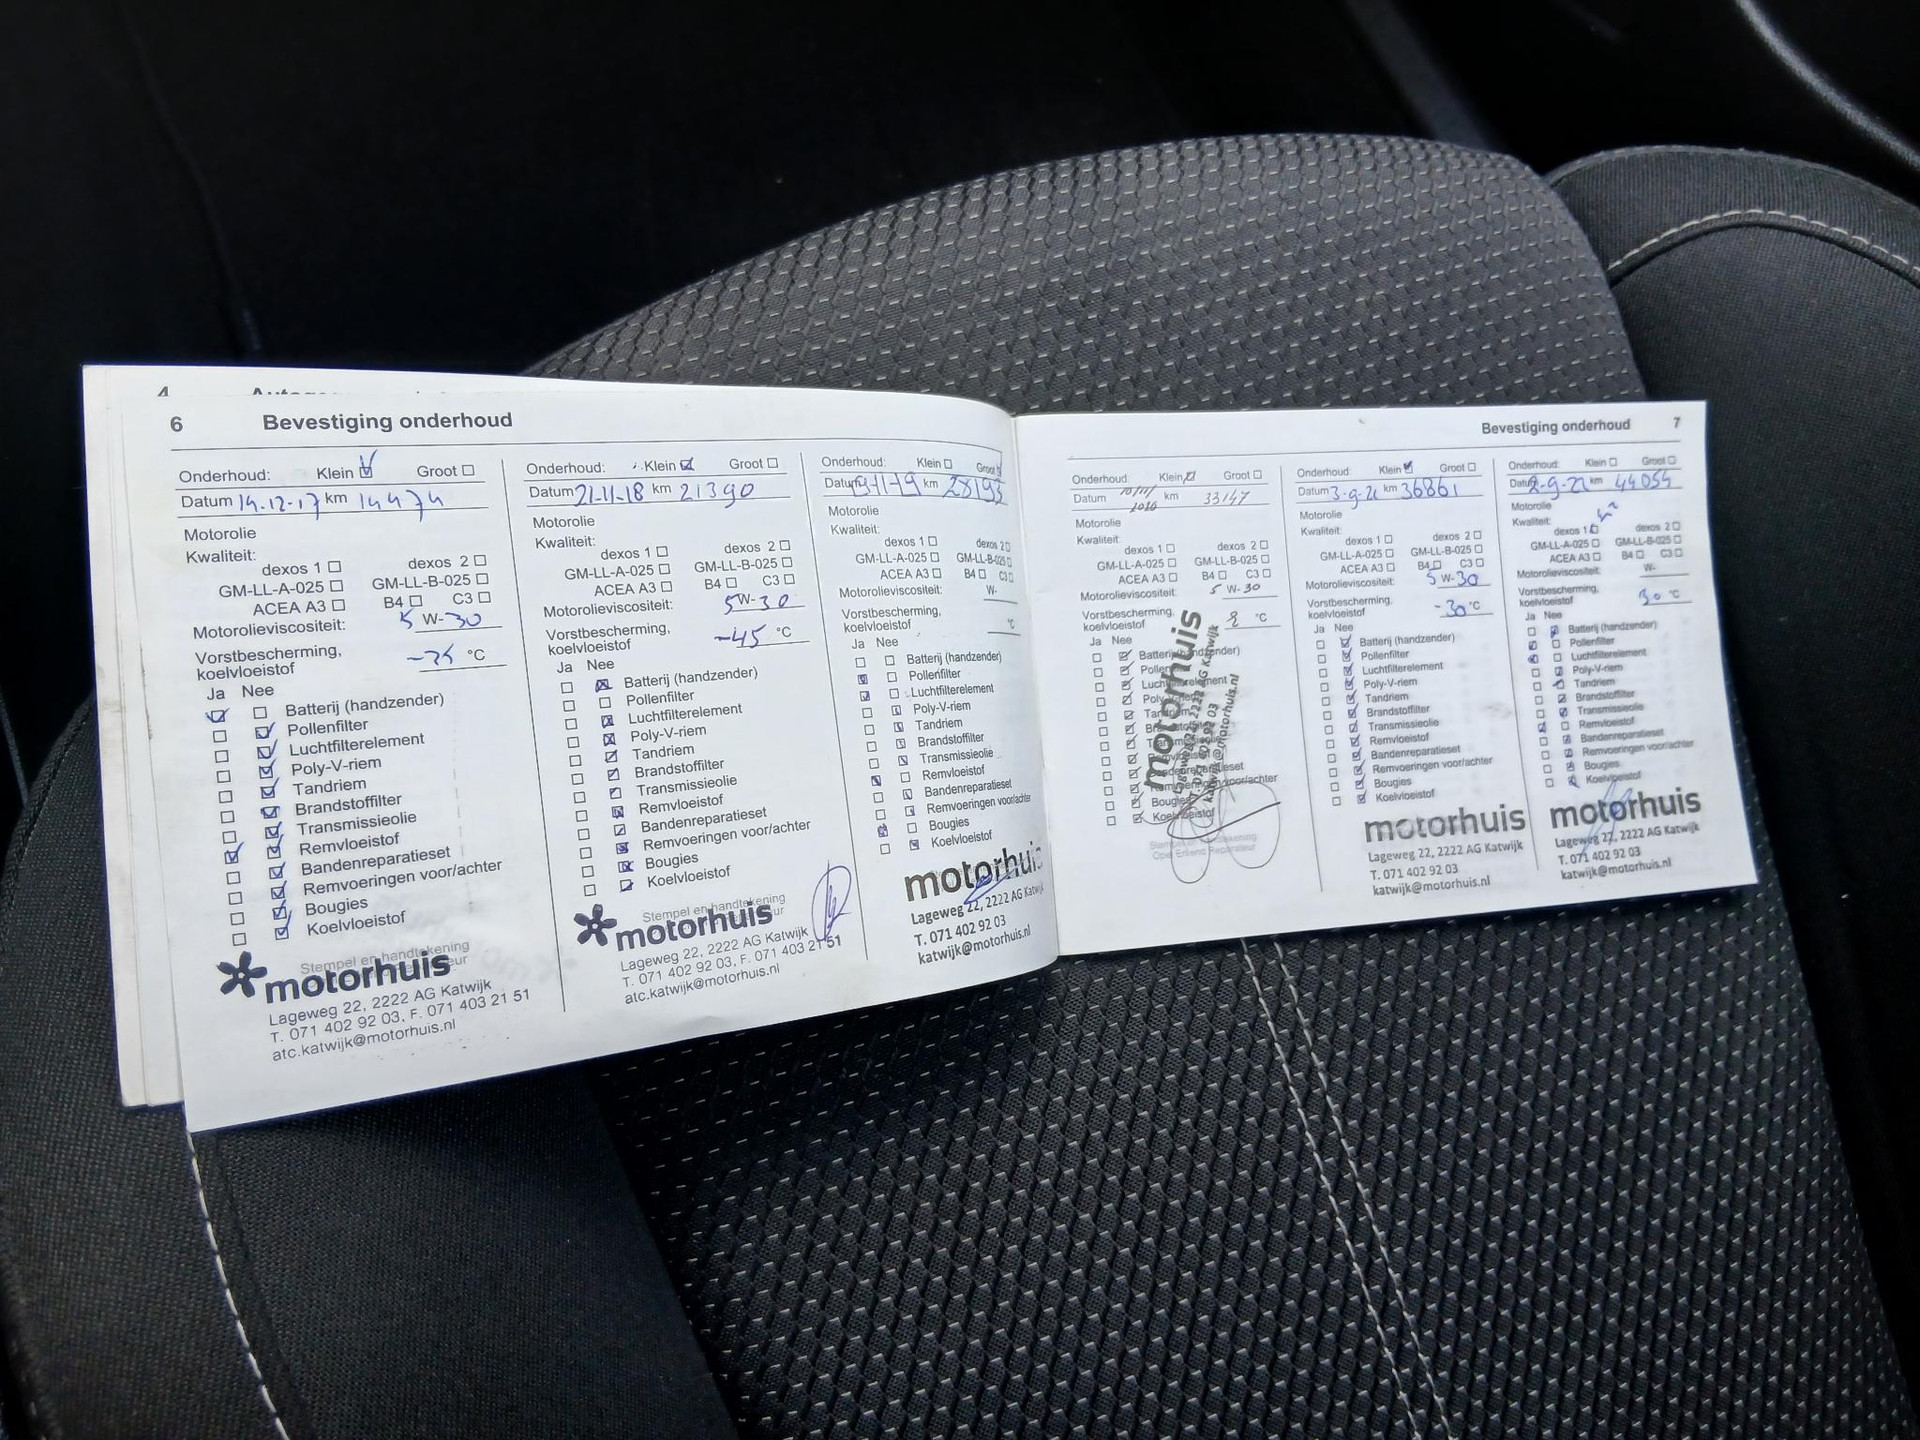 4
6 Bevestiging onderhoud
Onderhoud: Klein Groot
Datum 14-12-17 km 14474
Motorolie
Kwaliteit:
dexos 1 dexos 2
GM-LL-A-025 GM-LL-B-025
ACEA A3 B4 C3
Motorolieviscositeit: 5 W-30
Vorstbescherming,
koelvloeistof °C
Ja Nee
Batterij (handzender)
Pollenfilter
Luchtfilterelement
Poly-V-riem
Tandriem
Brandstoffilter
Transmissieolie
Remvloeistof
Bandenreparatieset
Remvoeringen voor/achter
Bougies
Koelvloeistof
Stempel en handtekening
motorhuis
Lageweg 22, 2222 AG Katwijk
T. 071 402 92 03, F. 071 403 21 51
atc.katwijk@motorhuis.nl
Onderhoud: Klein Groot
Datum 21-11-18 km 21390
Motorolie
Kwaliteit:
dexos 1 dexos 2
GM-LL-A-025 GM-LL-B-025
ACEA A3 B4 C3
Motorolieviscositeit: 5W-30
Vorstbescherming,
koelvloeistof -45 °C
Ja Nee
Batterij (handzender)
Pollenfilter
Luchtfilterelement
Poly-V-riem
Tandriem
Brandstoffilter
Transmissieolie
Remvloeistof
Bandenreparatieset
Remvoeringen voor/achter
Bougies
Koelvloeistof
Stempel en handtekening
motorhuis
Lageweg 22, 2222 AG Katwijk
T. 071 402 92 03, F. 071 403 21 51
atc.katwijk@motorhuis.nl
Onderhoud: Klein Groot
Datum km 28193
Motorolie
Kwaliteit:
dexos 1 dexos 2
GM-LL-A-025 GM-LL-B-025
ACEA A3 B4 C3
Motorolieviscositeit: W-
Vorstbescherming,
koelvloeistof °C
Ja Nee
Batterij (handzender)
Pollenfilter
Luchtfilterelement
Poly-V-riem
Tandriem
Brandstoffilter
Transmissieolie
Remvloeistof
Bandenreparatieset
Remvoeringen voor/achter
Bougies
Koelvloeistof
motorhuis
Lageweg 22, 2222 AG Katwijk
T. 071 402 92 03
katwijk@motorhuis.nl
Bevestiging onderhoud 7
Onderhoud: Klein Groot
Datum km 33147
Motorolie
Kwaliteit:
dexos 1 dexos 2
GM-LL-A-025 GM-LL-B-025
ACEA A3 B4 C3
Motorolieviscositeit: 5 W-30
Vorstbescherming,
koelvloeistof °C
Ja Nee
Batterij (handzender)
Bougies
Koelvloeistof
motorhuis
Lageweg 22, 2222 AG Katwijk
T. 071 402 92 03
katwijk@motorhuis.nl
Stempel en handtekening
Opel Erkend Reparateur
Onderhoud: Klein Groot
Datum km 36861
Motorolie
Kwaliteit:
dexos 1 dexos 2
GM-LL-A-025 GM-LL-B-025
ACEA A3 B4 C3
Motorolieviscositeit: 5 W-30
Vorstbescherming,
koelvloeistof -30 °C
Ja Nee
Batterij (handzender)
Pollenfilter
Luchtfilterelement
Poly-V-riem
Tandriem
Brandstoffilter
Transmissieolie
Remvloeistof
Bandenreparatieset
Remvoeringen voor/achter
Bougies
Koelvloeistof
motorhuis
Lageweg 22, 2222 AG Katwijk
T. 071 402 92 03
katwijk@motorhuis.nl
Onderhoud: Klein Groot
Datum km 44054
Motorolie
Kwaliteit:
dexos 1 dexos 2
GM-LL-A-025 GM-LL-B-025
ACEA A3 B4 C3
Motorolieviscositeit: W-
Vorstbescherming,
koelvloeistof 30 °C
Ja Nee
Batterij (handzender)
Pollenfilter
Luchtfilterelement
Poly-V-riem
Tandriem
Brandstoffilter
Transmissieolie
Remvloeistof
Bandenreparatieset
Remvoeringen voor/achter
Bougies
Koelvloeistof
motorhuis
Lageweg 22, 2222 AG Katwijk
T. 071 402 92 03
katwijk@motorhuis.nl